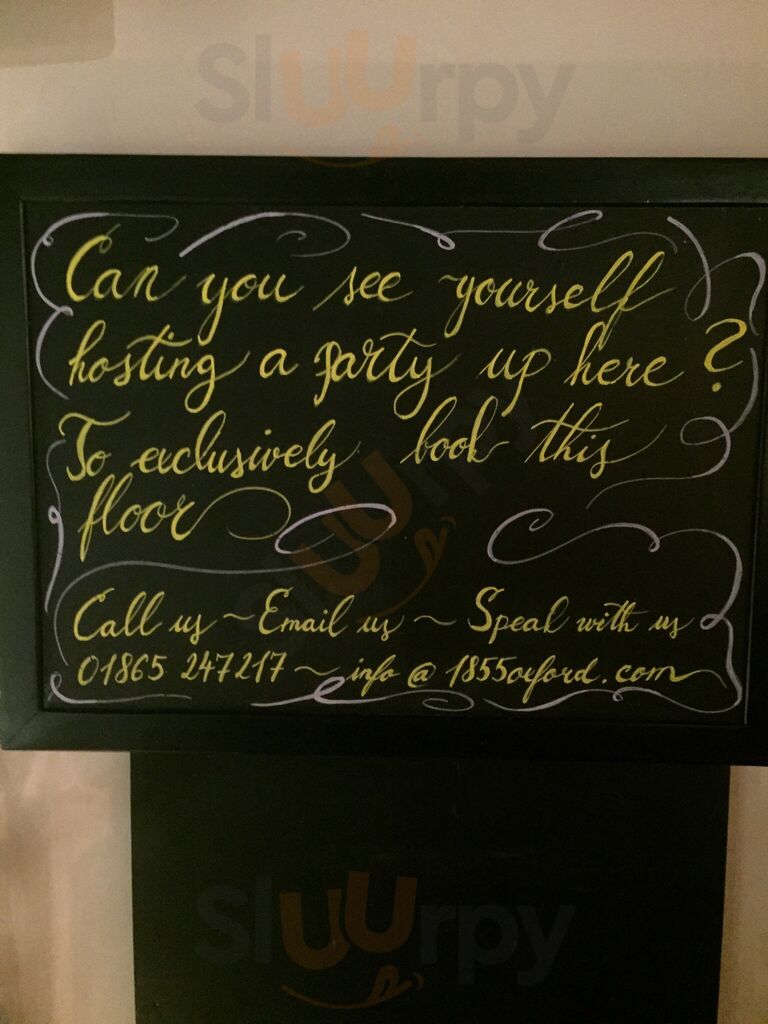 Sluurpy
Can you see yourself
hosting a party up here?
To exclusively book this
floor
Sluurpy
Call us ~ Email us ~ Speak with us
01865 247217 ~ info @ 1855oxford.com
Sluurpy